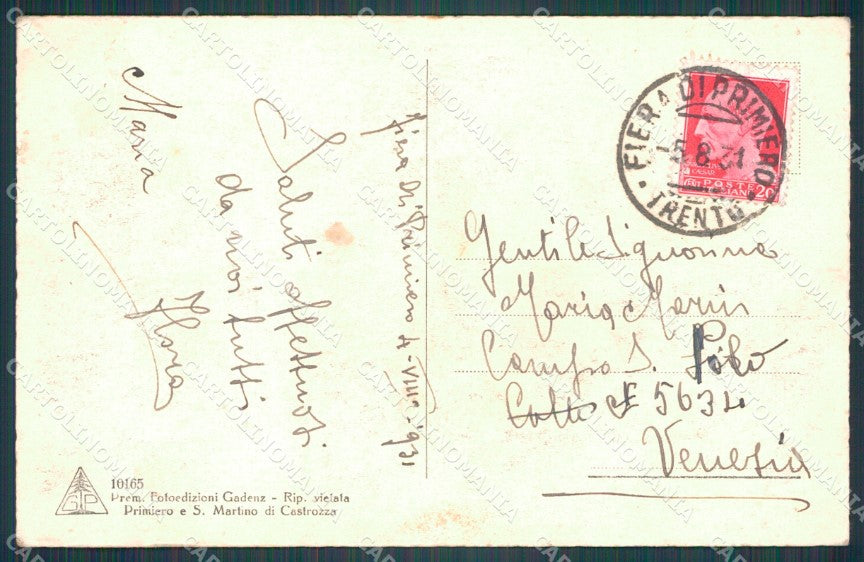 Maria
Saluti affettuosi
da noi tutti
Flora
Fiera di Primiero 4-VIII-931
FIERA DI PRIMIERO
5.8.31
TRENTO
POSTE
CAESAR
20
Gentile Signorina
Maria Marin
Campo S. Polo
5634
Venezia
10165
Prem. Fotoedizioni Gadenz - Rip. vietata
Primiero e S. Martino di Castrozza
GP
CARTOLINOMANIA